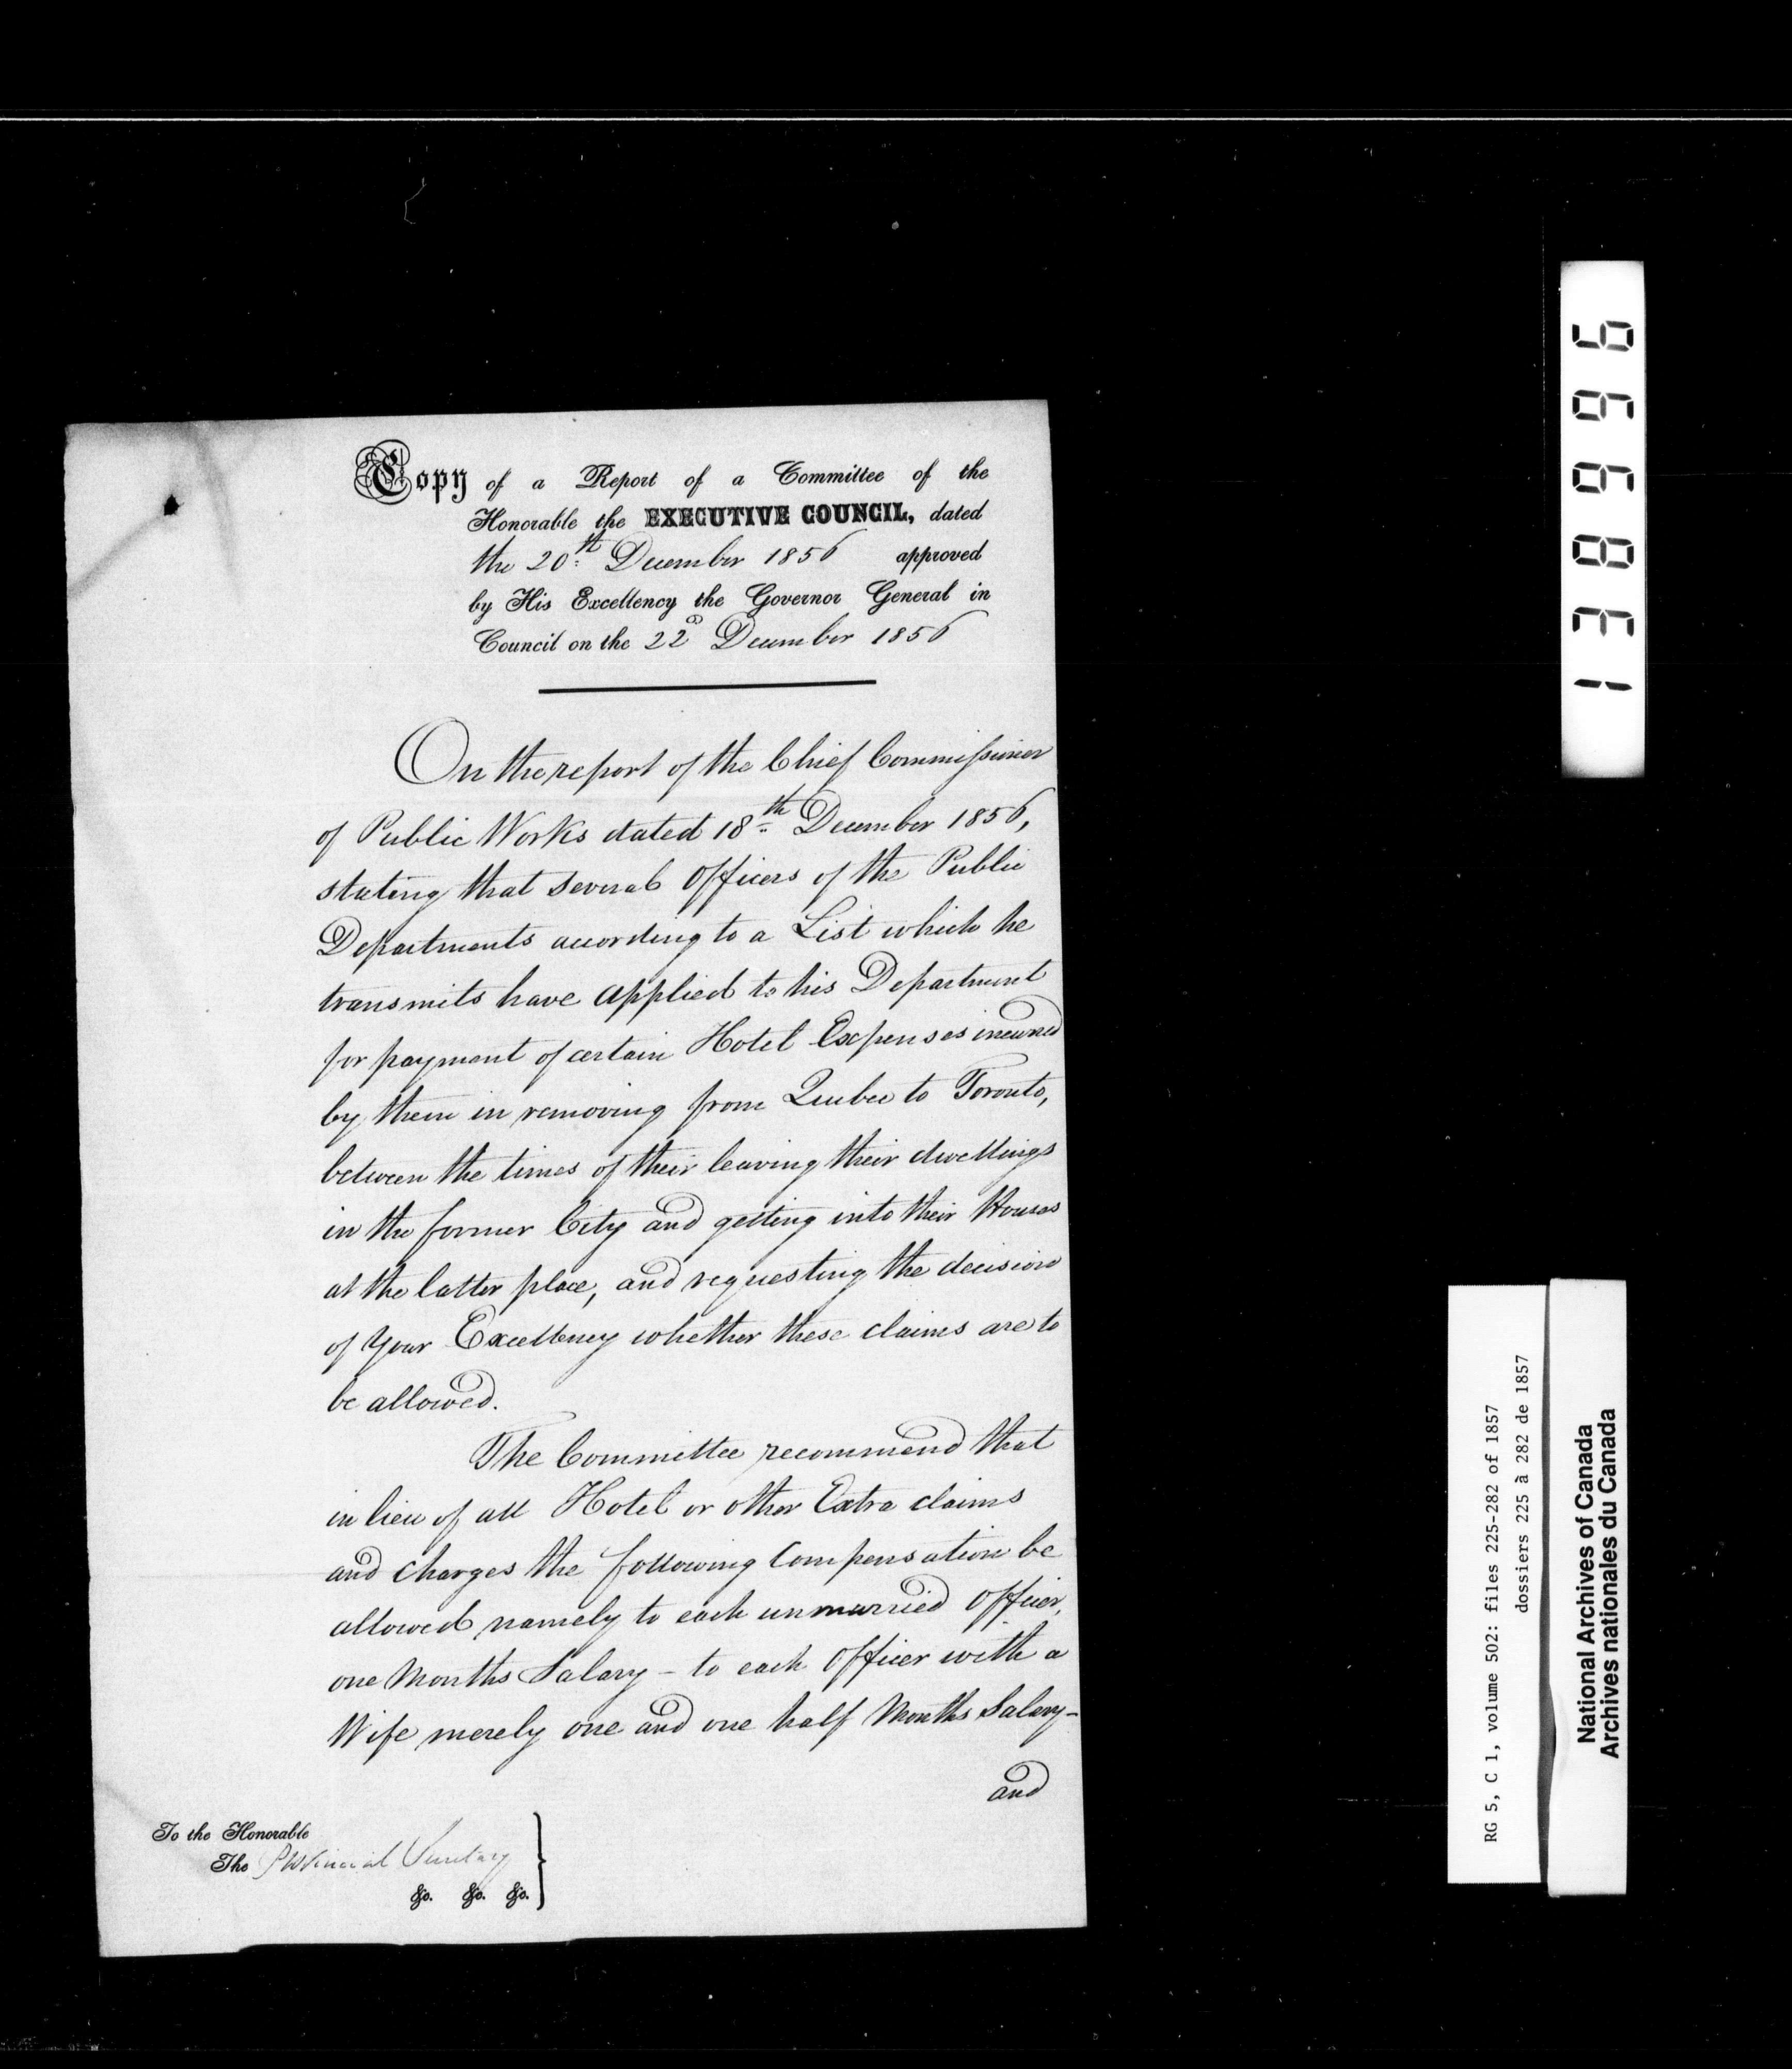 Copy of a Report of a Committee of the
Honorable the EXECUTIVE COUNCIL, dated
the 20th December 1856 approved
by His Excellency the Governor General in
Council on the 22d December 1856
On the report of the Chief Commissioner
of Public Works dated 18th December 1856,
stating that several Officers of the Public
Departments according to a List which he
transmits have applied to his Department
for payment of certain Hotel Expenses incurred
by them in removing from Quebec to Toronto,
between the times of their leaving their dwellings
in the former City and getting into their Houses
at the latter place, and requesting the decision
of Your Excellency whether these claims are to
be allowed.
The Committee recommend that
in lieu of all Hotel or other Extra claims
and charges the following Compensation be
allowed namely to each unmarried Officer,
one Months Salary - to each Officer with a
Wife merely one and one half Months Salary-
and
To the Honorable
The Provincial Secretary
&c. &c. &c.
138996
RG 5, C 1, volume 502: files 225-282 of 1857
dossiers 225 à 282 de 1857
National Archives of Canada
Archives nationales du Canada